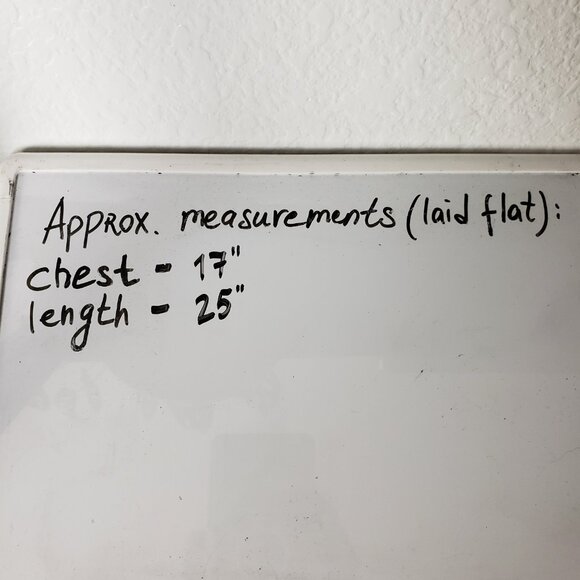 Approx. measurements (laid flat):
chest - 17"
length - 25"